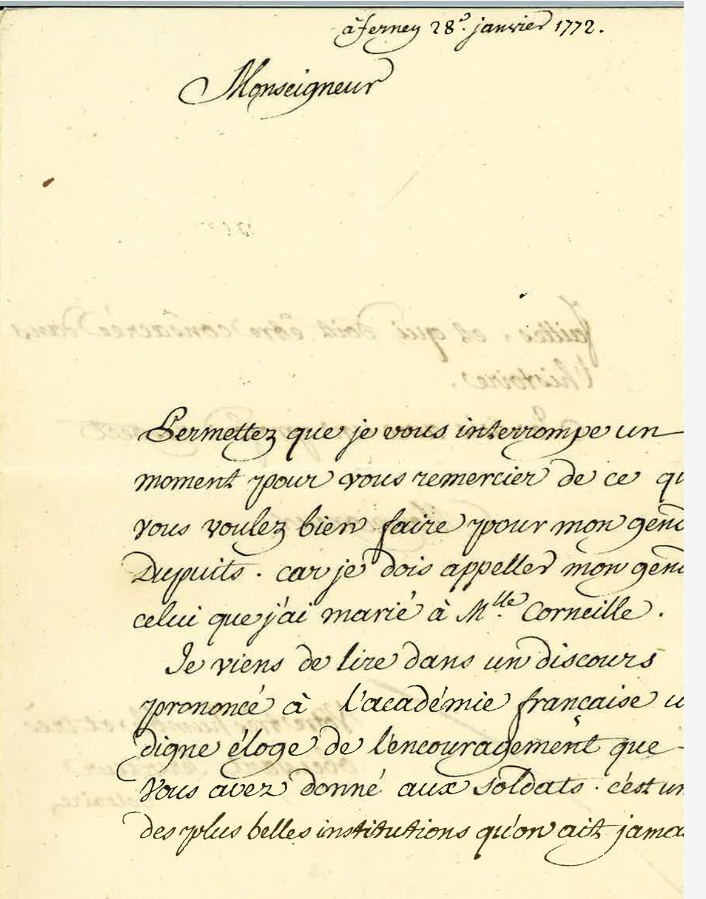 à ferney 28e. janvier 1772.
Monseigneur
Permettez que je vous interrompe un
moment pour vous remercier de ce qu
vous voulez bien faire pour mon gend
Dupuits. car je dois appeller mon gend
celui que j'ai marié à Mlle. Corneille.
Je viens de lire dans un discours
prononcé à l'académie francaise u
digne éloge de l'encouragement que
vous avez donné aux soldats. c'est un
des plus belles institutions qu'on ait jama
faittes, et qui doit être consacrée dans
l'histoire.